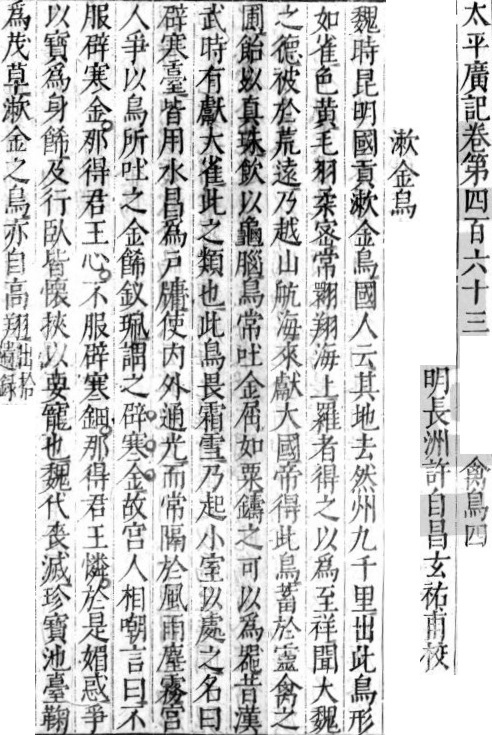 太平廣記卷第四百六十三
禽鳥四
明長洲許自昌玄祐甫校
漱金鳥
魏時昆明國貢漱金鳥國人云其地去然州九千里出此鳥形
如雀色黄毛羽柔宻常翺翔海上羅者得之以為至祥聞大魏
之德被於荒遠乃越山航海來獻大國帝得此鳥蓄於靈禽之
圃飴以真珠飲以龜腦鳥常吐金屑如粟鑄之可以為器昔漢
武時有獻大雀此之類也此鳥畏霜雪乃起小室以處之名曰
辟寒臺皆用水昌為戸牗使内外通光而常隔於風雨塵霧宫
人爭以鳥所吐之金餙釵珮謂之辟寒金故宫人相嘲言曰不
服辟寒金那得君王心不服辟寒鈿那得君王憐於是媚惑爭
以寳為身餙及行臥皆懷挾以要寵也魏代䘮滅珍寳池臺鞠
為茂草漱金之鳥亦自高翔出拾遺録